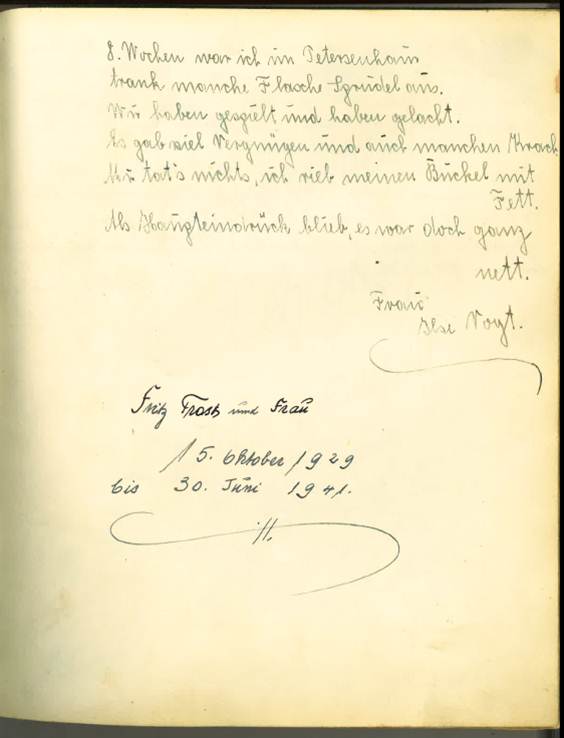 8. Wochen war ich im Petersenhaus
trank manche Flasche Sprudel aus.
Wir haben gespielt und haben gelacht.
Es gab viel Vergnügen und auch manchen Krach
Mir tat's nichts, ich rieb meinen Buckel mit
Fett.
Als Haupteindrück blieb, es war doch ganz
nett.
Frau
Ilse Vogt.
Fritz Trost und Frau
15. Oktober 1929
bis 30. Juni 1941.